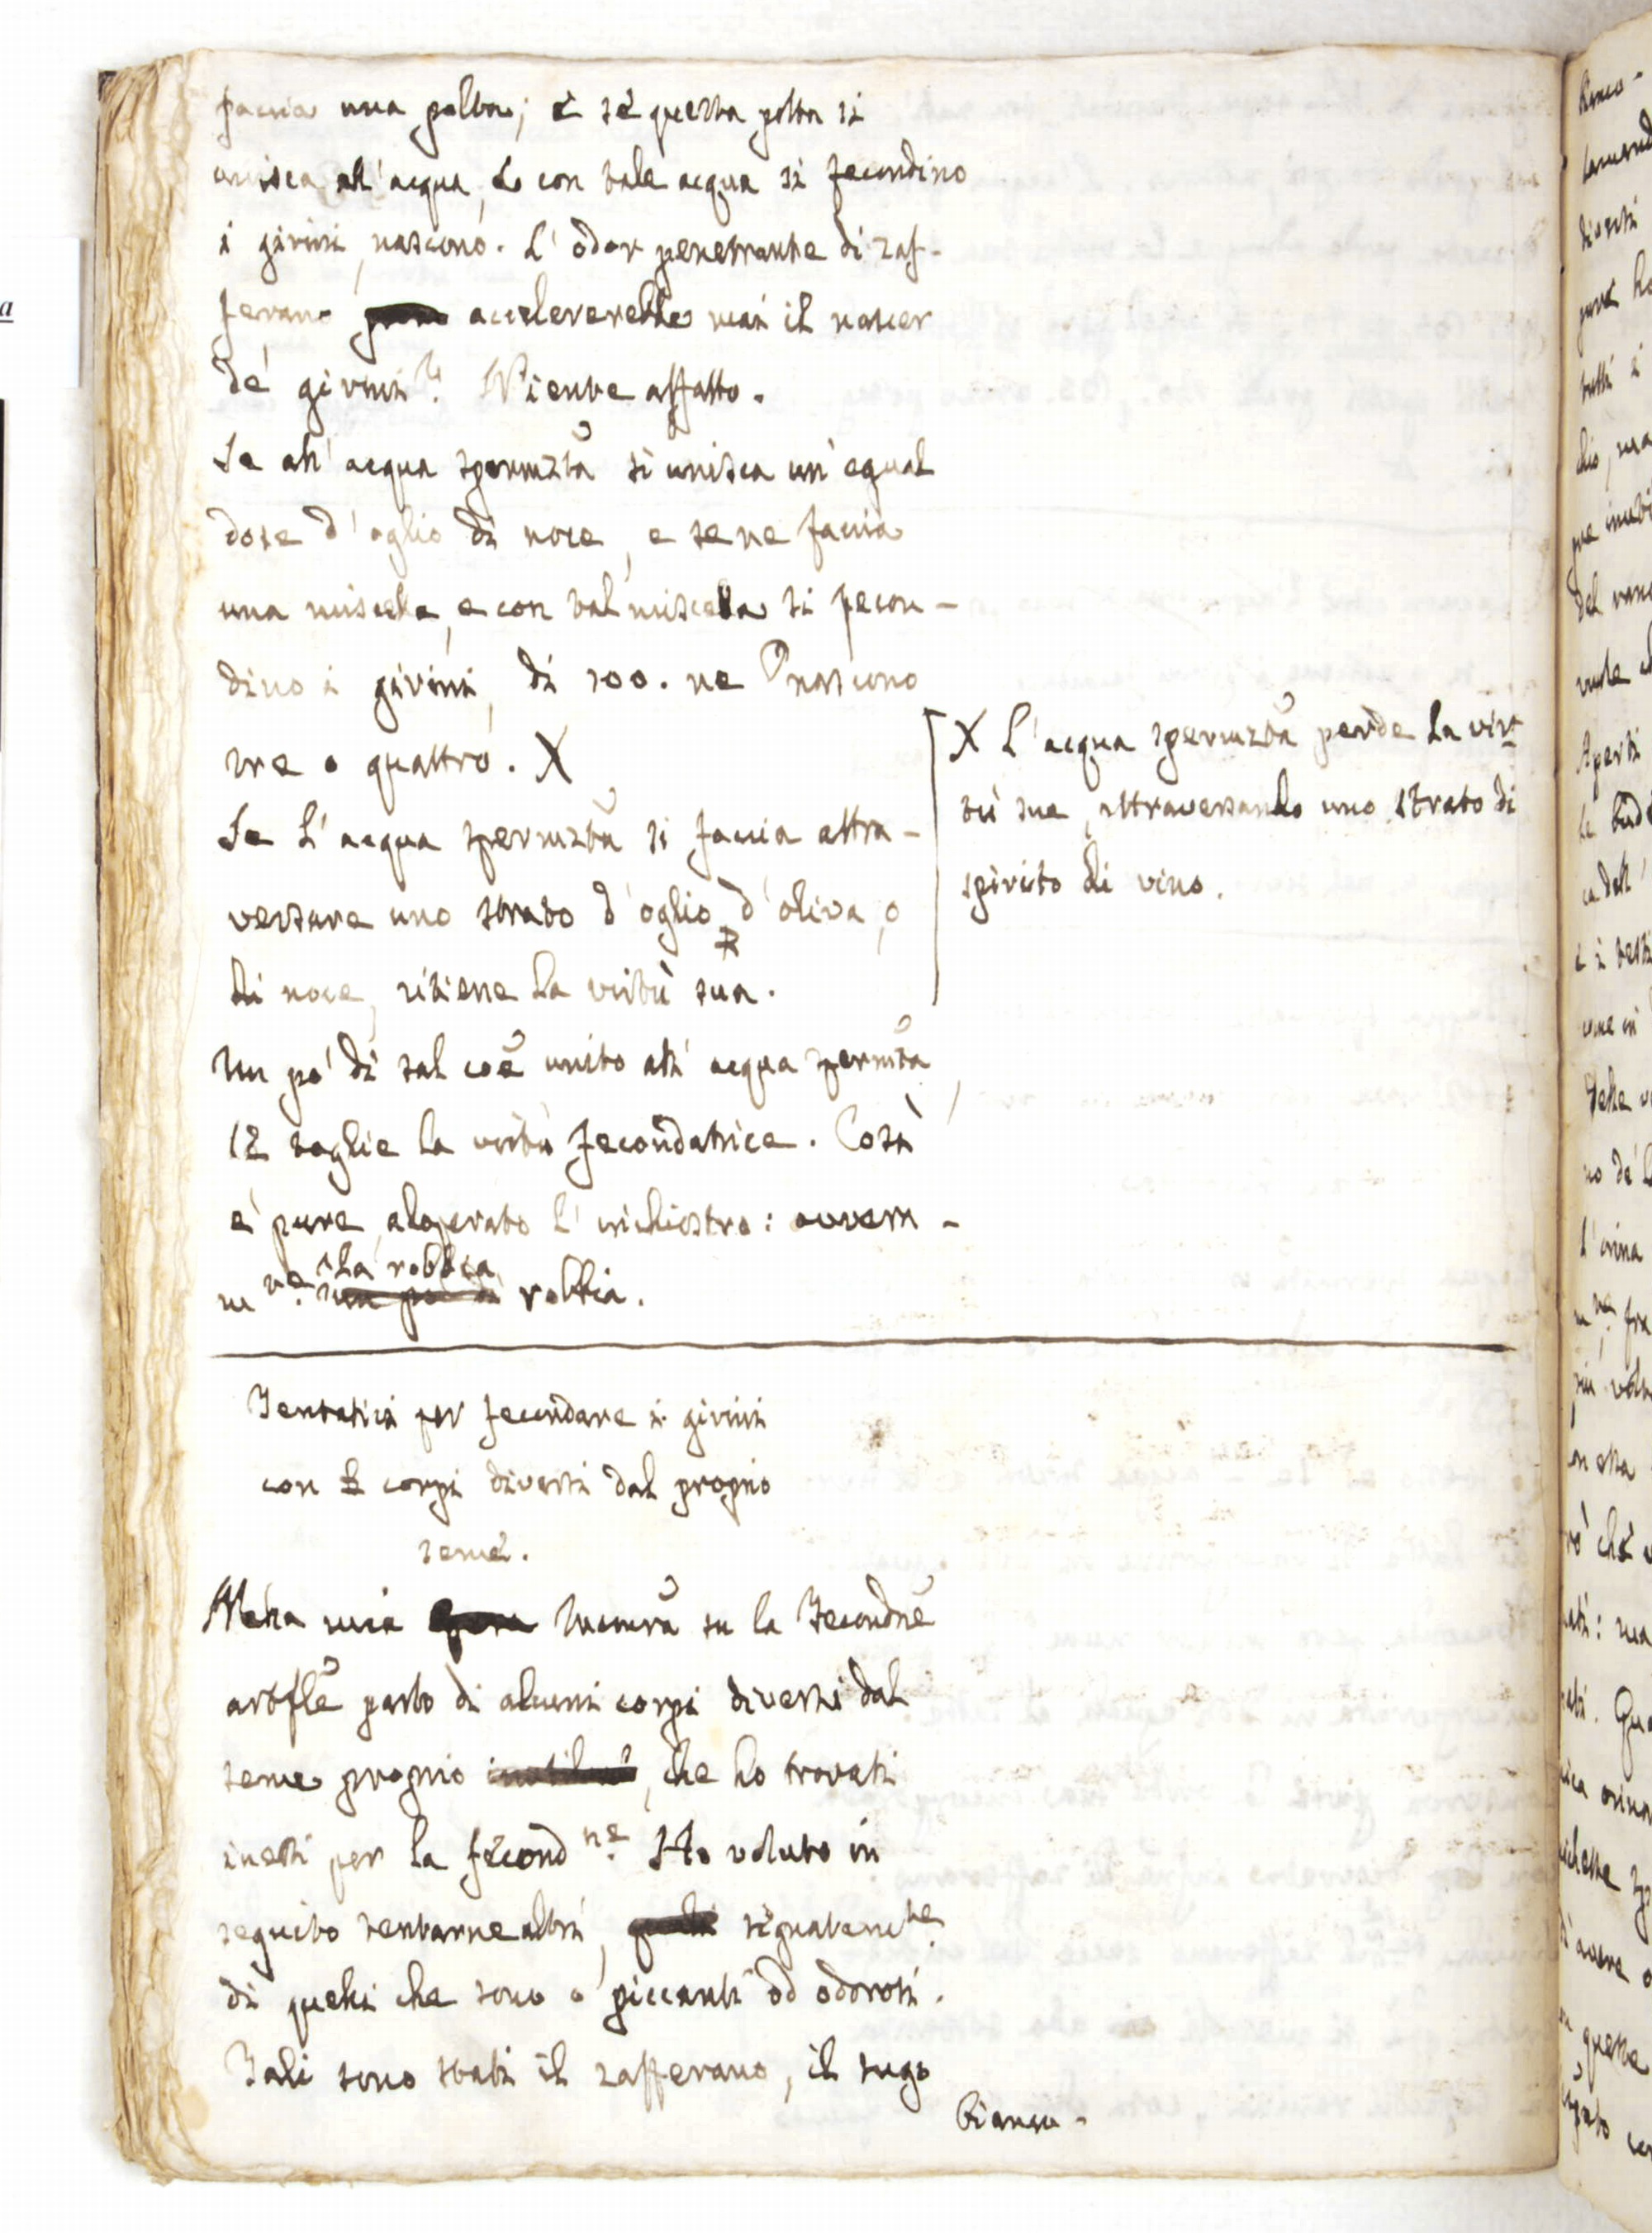 faccia una polta; e se questa polta si
unisca all'acqua, e con tale acqua si fecondino
i girini, nascono. L'odor penetrante di zaf-
ferano accelererebbe mai il nascer
de' girini? Niente affatto.
Se all'acqua spermzta si unisca un'egual
dose d'oglio di noce, e se ne faccia
una miscela, e con tal miscella si fecon-
dino i girini, di 100. ne nascono
tre o quattro. X
Se l'acqua spermzta si faccia attra-
versare uno strato d'oglio d'oliva, o
di noce, ritiene la virtù sua.
X L'acqua spermzta perde la vir-
tù sua, attraversando uno strato di
spirito di vino.
Un po' di sal coe unito all'acqua spermta,
le toglie la virtù fecondatrice. Così
è pure aloperato l'inchiostro: ovvera-
m.te la robbia robbia.
Tentativi per fecondare i girini
con corpi diversi dal proprio
seme.
Nella mia su la Fecondne
artifle parlo di alcuni corpi diversi dal
seme proprio, che ho trovati
inetti per la fecond.ne Ho voluto in
seguito tentarne altri, segnatam.te
di quelli che sono o piccanti od odorosi.
Tali sono stati il zafferano, il sugo
bianco-